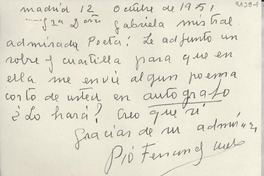 Madrid 12 Octubre de 1951
Gra Dña Gabriela Mistral
admirada Poeta: Le adjunto un
sobre y cuartilla para que en
ella me envie algun poema
corto de usted en autografo
¿Lo hará? Creo que sí
Gracias de su
Pió